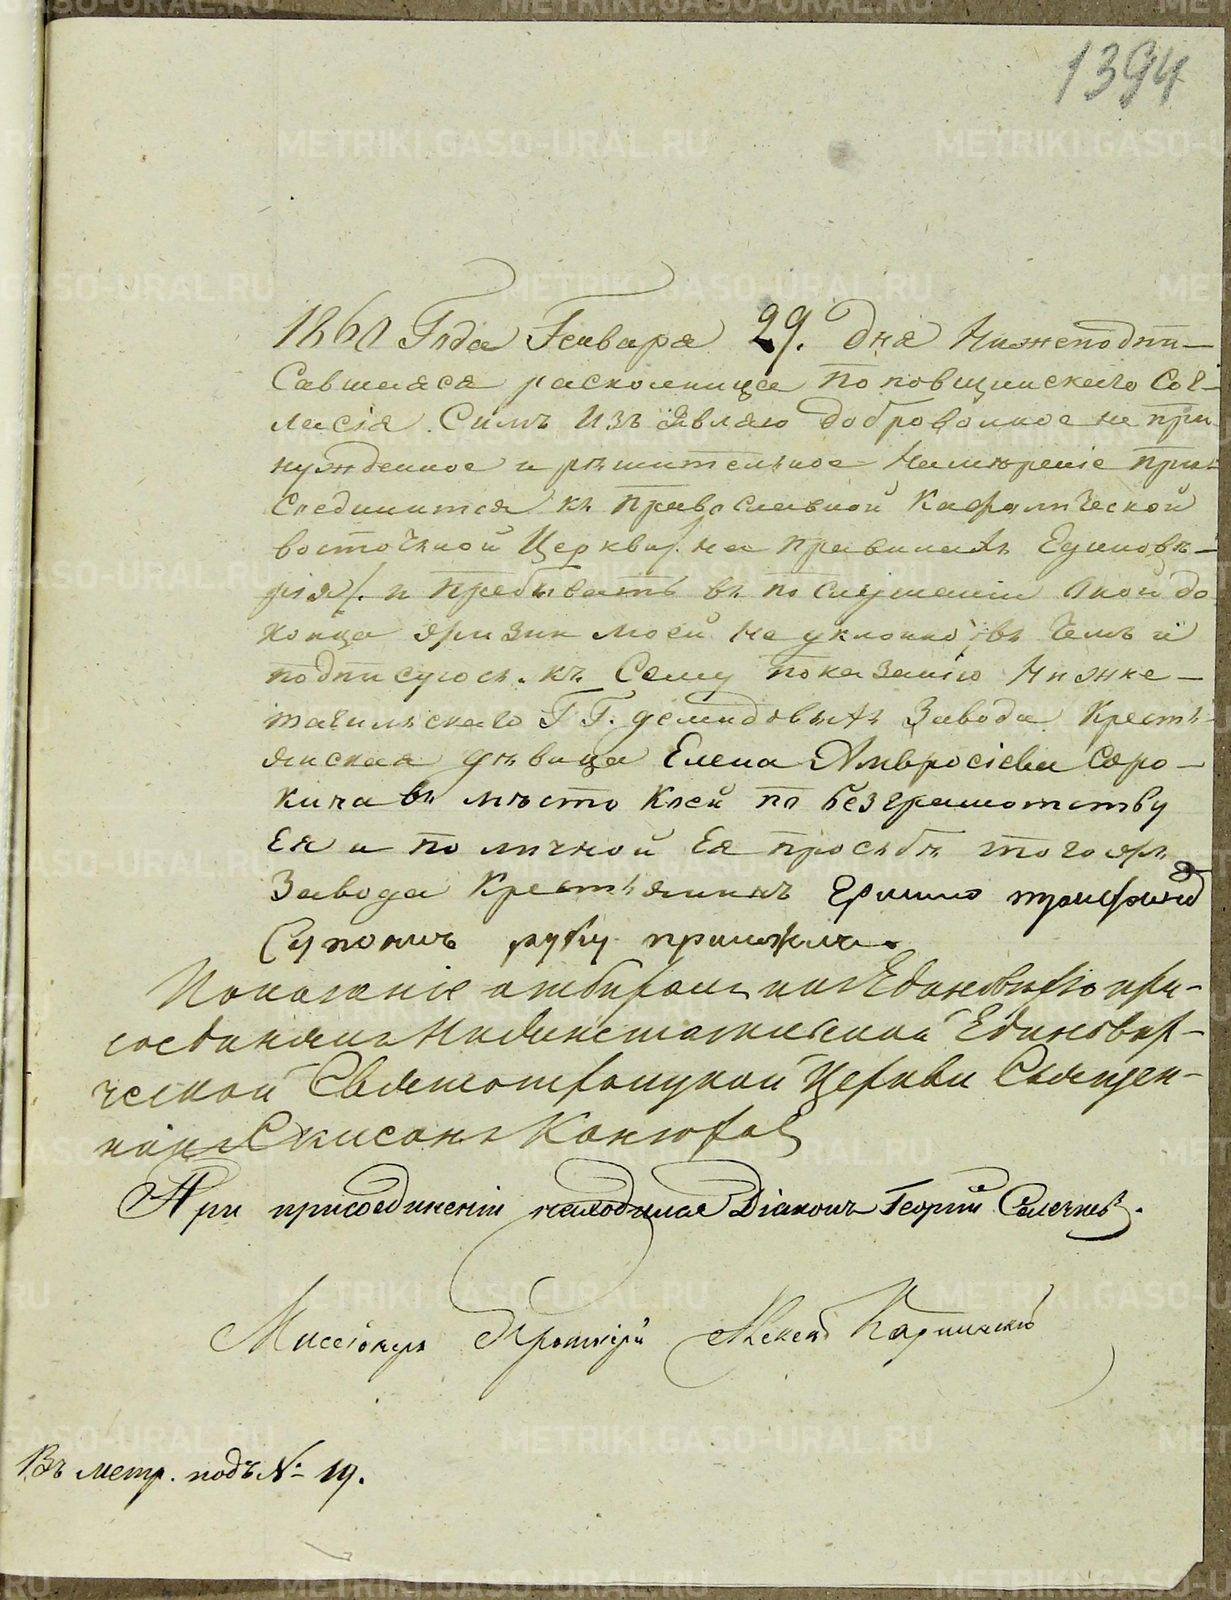 1394
1860 Года Генваря 29. дня Нижеподпи-
савшаяся расколница поповщинскаго Сог-
ласія Симъ Изъ являю доброволное не при
нужденное и решительное намереніе при-
Соединится къ православной Кафолической
восточной Церкви /. на правилахъ Единовѣ-
рія /. и пребывать въ послушаніи оной до
конца жизни моей не уклонно, въ чемъ и
подписуюсь. къ Сему показанію Нижне-
тагилскаго Г.Г. демидовыхъ Завода Кресть-
янская дѣвица Елена Амвросіева Соро-
кина въ мѣсто Коей по безграмотству
Ея и по личной Ея прозьбѣ тогожъ
Завода Крестьянинъ
руку приложилъ.
Показаніе отбиралъ и къ Единовѣрію при-
соединялъ Нижнетагильской Единовѣр-
ческой Святотроицкой Церкви Священ-
никъ
При присоединеніи находился Діаконъ Георгій
Миссіонеръ Протоіерей
Въ метр. подъ № 19.